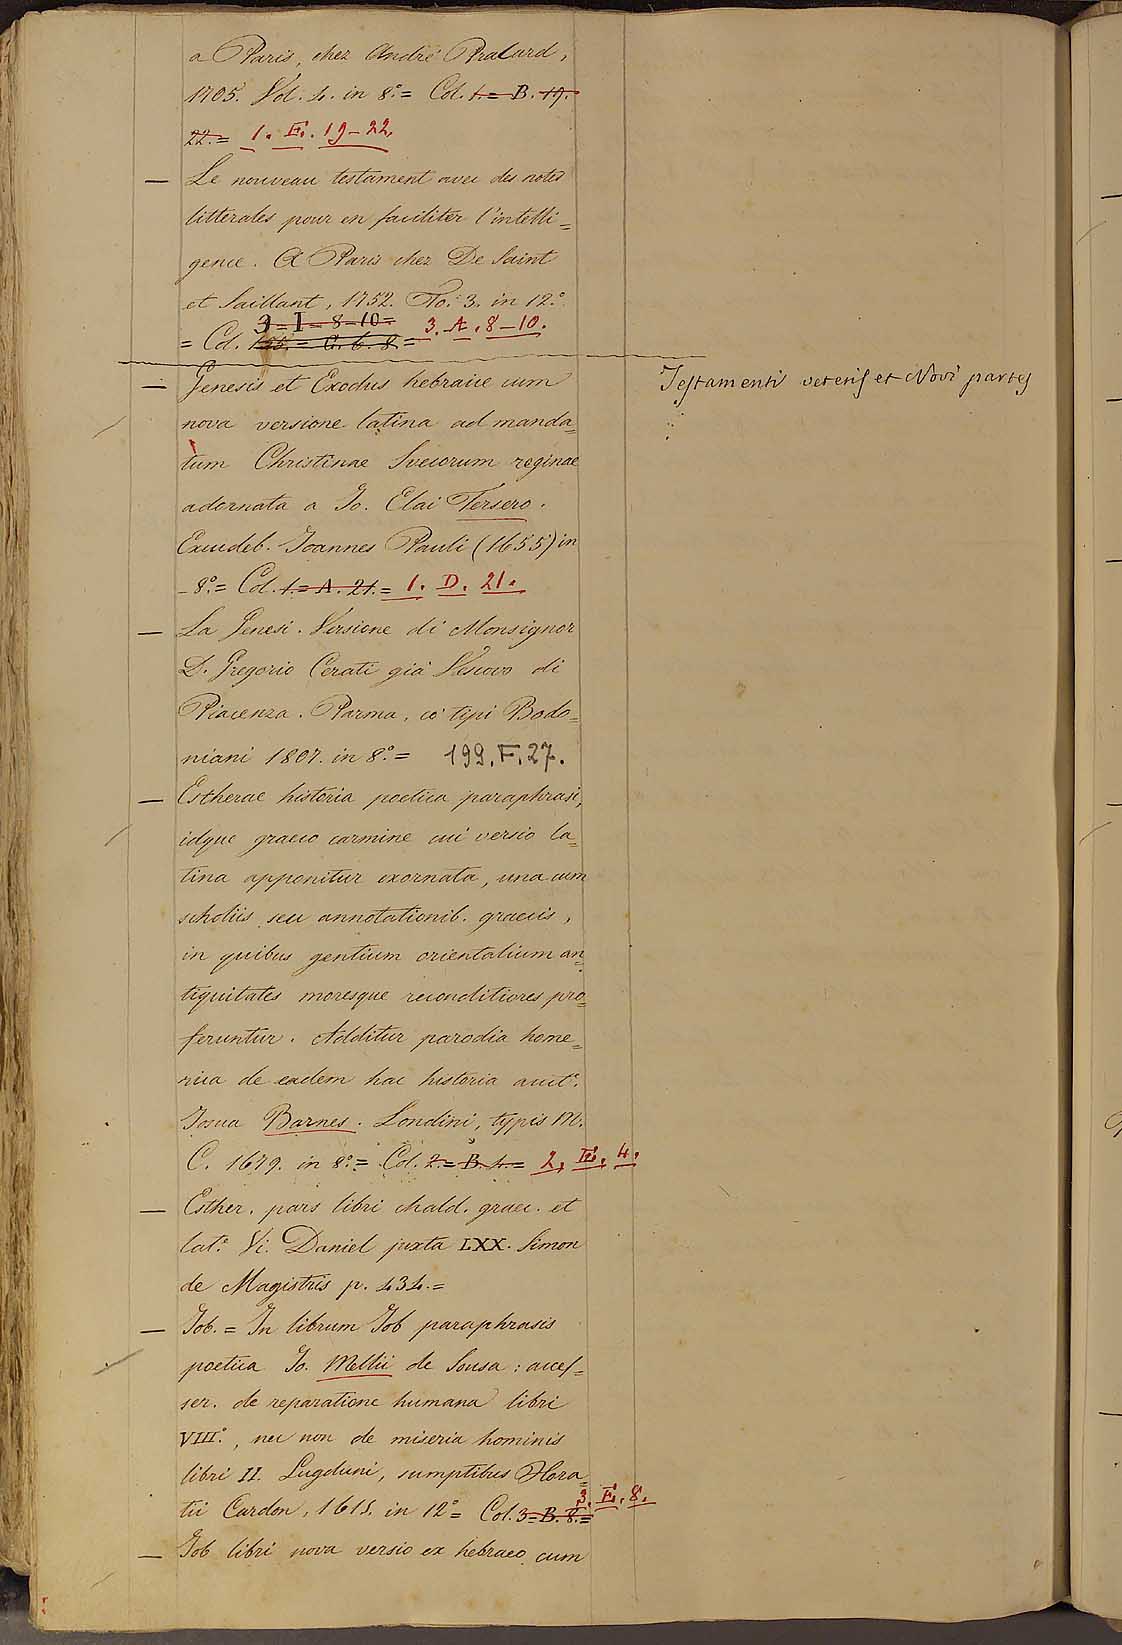 a Paris, chez André Pralard,
1705. Vol. 4. in 8.º= Col. 1.= B. 19.
22.= 1. E. 19-22.
— Le nouveau testament avec des notes
litterales pour en faciliter l'intelli=
gence. A Paris chez De Saint
et Saillant, 1752. To. 3. in 12.º
3-I-8-10=
= Col. = C. 6. 8.= 3. A. 8-10.
— Genesis et Exodus hebraice cum
Testamenti veteris et Novi partes
nova versione latina ad manda=
tum Christinae Svecorum reginae
adornata a Jo. Elai Tersero.
Excudeb. Joannes Pauli (1655) in
-8.º= Col. 1.= A. 21.= 1. D. 21.
— La Genesi. Versione di Monsignor
D. Gregorio Cerati già Vescovo di
Piacenza. Parma, co' tipi Bodo=
niani 1807. in 8.º= 199. F. 27.
— Estherae historia poetica paraphrasi,
idque graeco carmine cui versio la=
tina apponitur exornata, una cum
scholiis seu annotationib. graecis,
in quibus gentium orientalium an=
tiquitates moresque reconditiores pro=
feruntur. Additur parodia home=
rica de eadem hac historia auct.e
Josua Barnes. Londini, typis M.
C. 1679. in 8.º= Col. 2.= B. 4.= 2. E. 4.
— Esther. pars libri chald. graec. et
lat.e Vi. Daniel juxta LXX. Simon
de Magistris p. 434.=
— Job. = In librum Job paraphrasis
poetica Jo. Mellii de Sousa: acces=
ser. de reparatione humana libri
VIII.º, nec non de miseria hominis
libri II. Lugduni, sumptibus Hora=
tii Cardon, 1615. in 12º= Col. 3=B. 8.= 3. E. 8.
— Job libri nova versio ex hebraeo cum